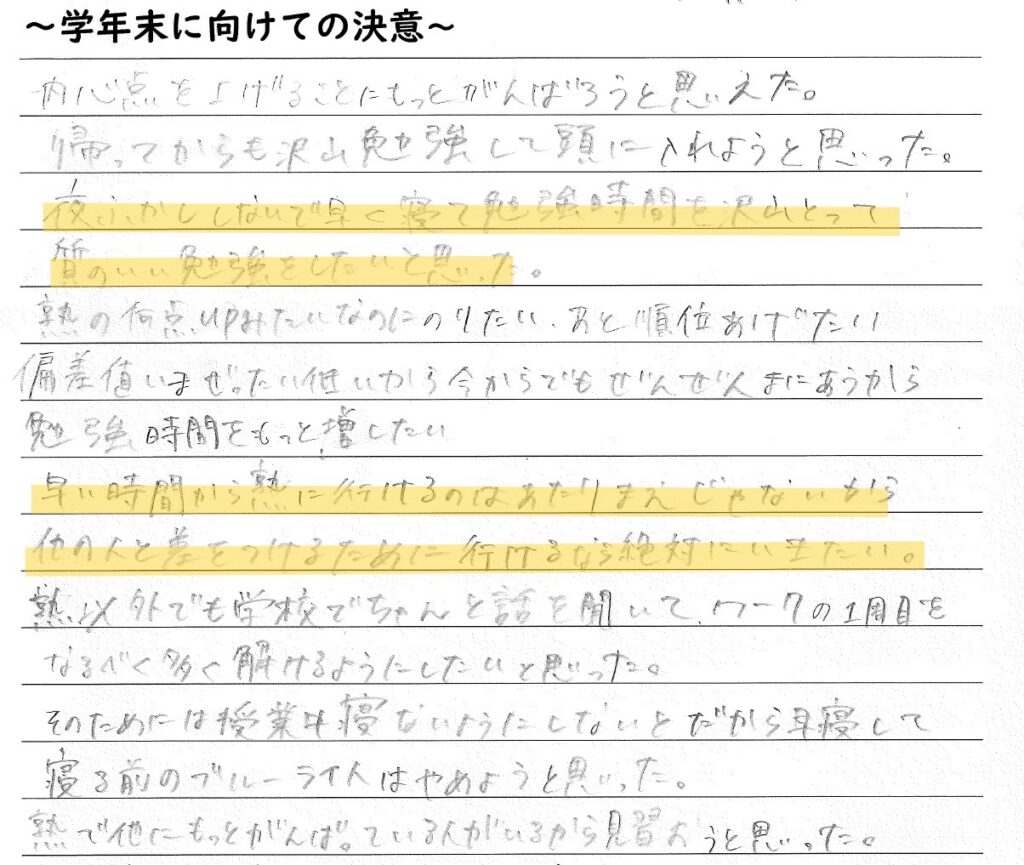 ～学年末に向けての決意～
内心点を上げることにもっとがんばろうと思いえた。
帰ってからも沢山勉強して頭に入れようと思った。
夜ふかししないで早く寝て勉強時間を沢山とって
質のいい勉強をしたいと思った。
熟の何点upみたいなのにのりたい、あと順位あげたい
偏差値いまぜったい低いから今からでもぜんぜんまにあうから
勉強時間をもっと増したい
早い時間から熟に行けるのはあたりまえじゃないから
他の人と差をつけるために行けるなら絶対にいきたい。
熟以外でも学校でちゃんと話を聞いて、ワークの1周目を
なるべく多く解けるようにしたいと思った。
そのためには授業中寝ないようにしないとだから早寝して
寝る前のブルーライトはやめようと思った。
熟で他にもっとがんばっている人がいるから見習おうと思った。